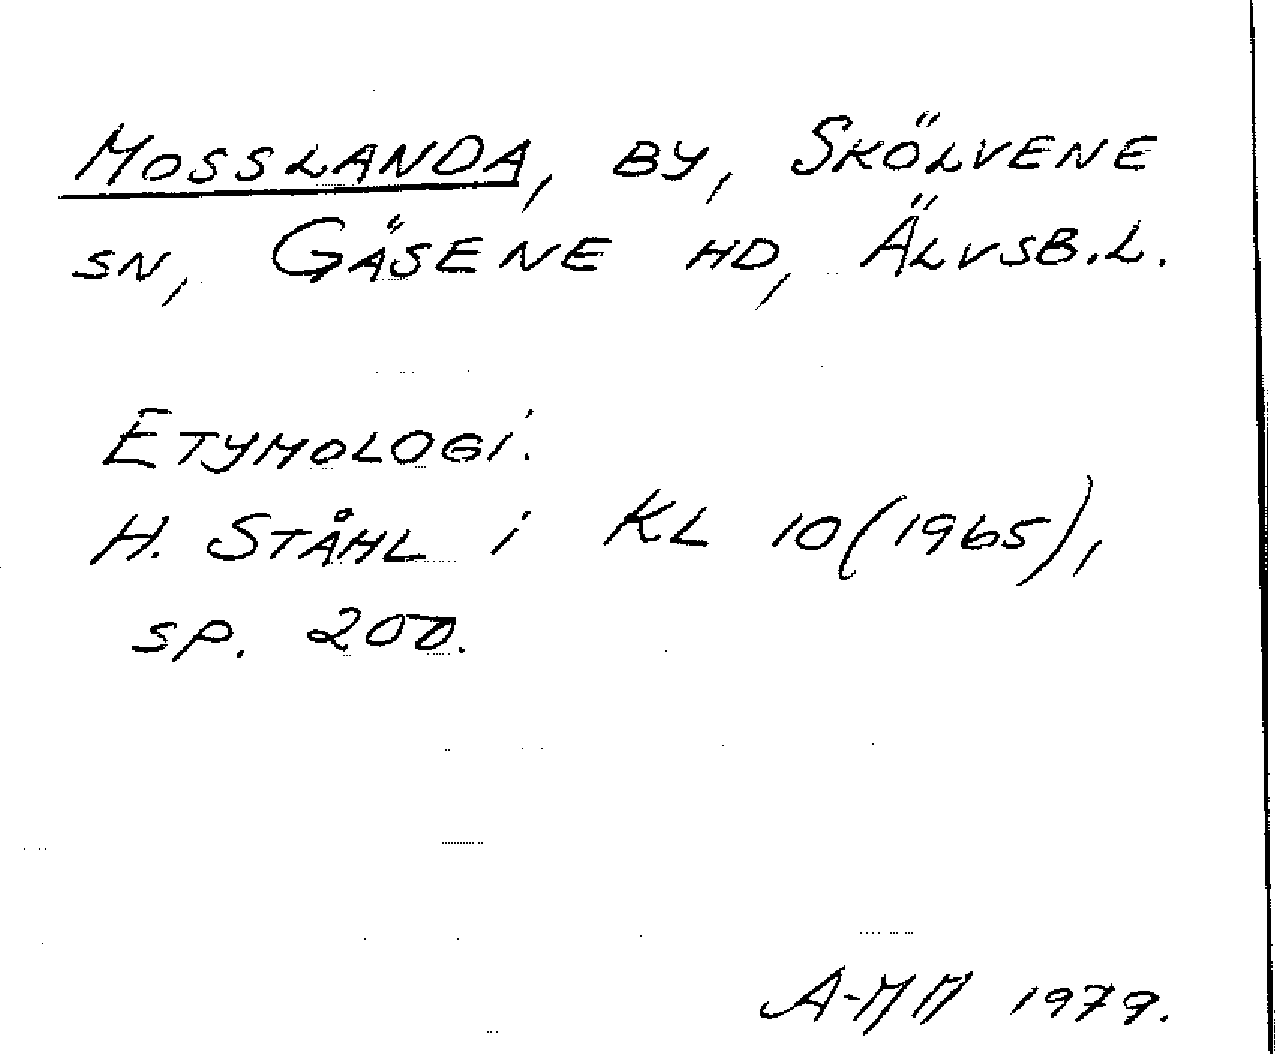 MOSSLANDA, BY, SKÖLVENE
SN, GÄSENE HD, ÄLVSB.L.
ETYMOLOGI.
H. STÅHL i KL 10(1965),
SP. 200.
A-MM 1979.